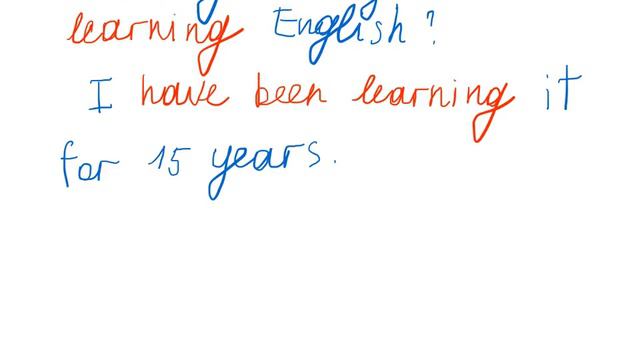 learning English?
I have been learning it
for 15 years.